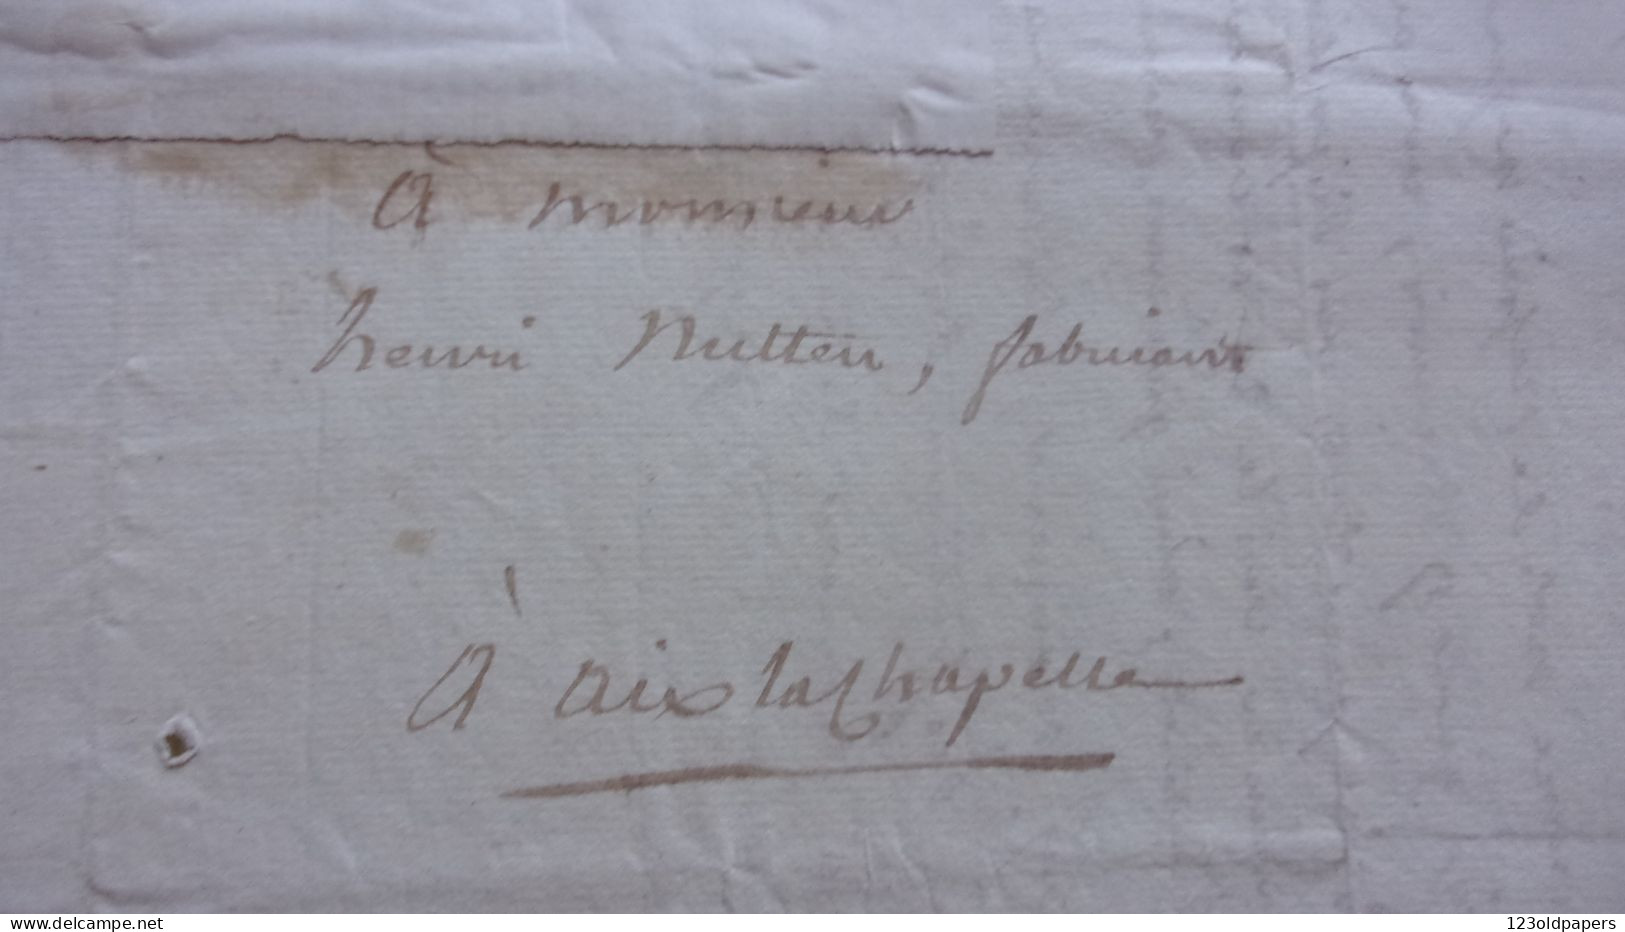 À monsieur
henri Nutten, fabricant
À aix la Chapelle
www.delcampe.net
123oldpapers